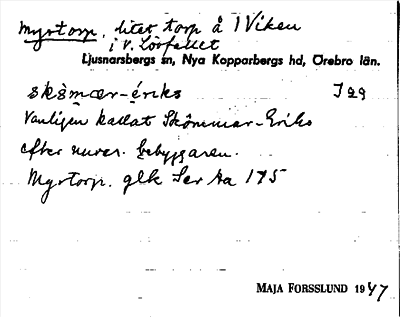 Myrtorp, litet torp å 1 Viken
i v. Lörfallet
Ljusnarsbergs sn, Nya Kopparbergs hd, Örebro län.
skòmær-ériks I 29
Vanligen kallat Skömmar-Eriks
efter nuvar. bebyggaren.
Myrtorp. glk Ser ka 175
MAJA FORSSLUND 1947